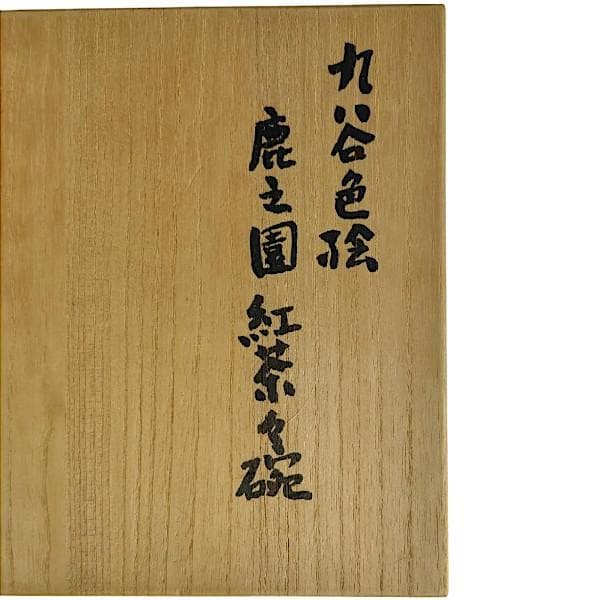 九谷色絵
鹿之園紅茶々碗